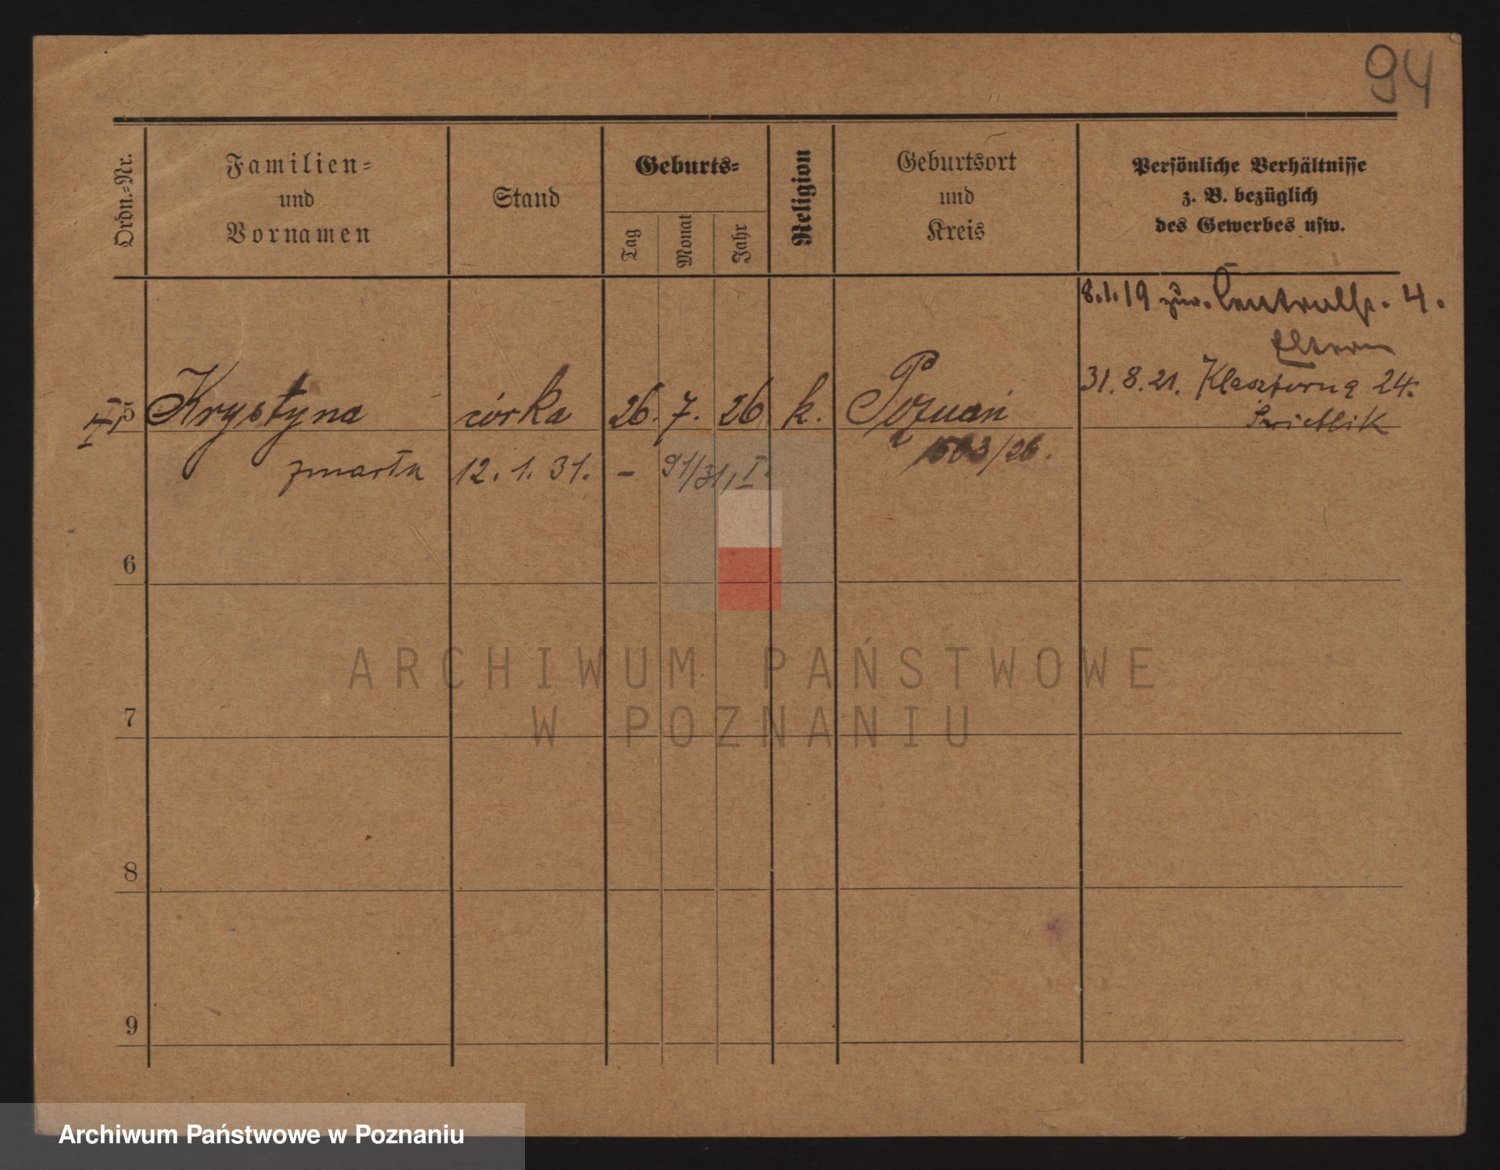 94
Ordn.=Nr.
Familien=
und
Vornamen
Stand
Geburts=
Tag
Monat
Jahr
Religion
Geburtsort
und
Kreis
Persönliche Verhältnisse
z. B. bezüglich
des Gewerbes usw.
8.1.19 zur. Centralst. 4.
Eltern
31.8.21. Klasztorna 24.
5 Krystyna córka 26. 7. 26 k. Poznań
zmarła 12.1.31. – 91/31, I. 1503/26.
6
7
8
9
ARCHIWUM PAŃSTWOWE
W POZNANIU
Archiwum Państwowe w Poznaniu